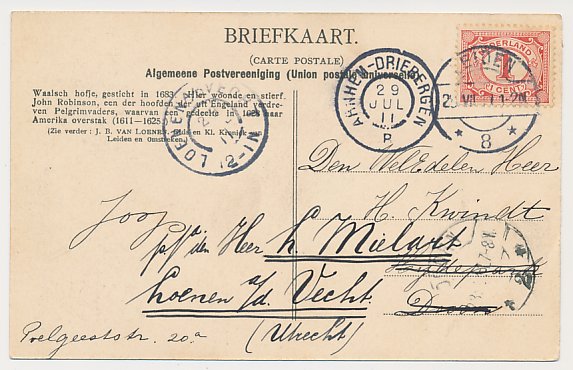 BRIEFKAART.
(CARTE POSTALE)
Algemeene Postvereeniging (Union postale universelle)
Waalsch hofje, gesticht in 1683. Hier woonde en stierf
John Robinson, een der hoofden der uit Engeland verdre-
ven Pelgrimvaders, waarvan een gedeelte in 1620 naar
Amerika overstak (1611—1625)
(Zie verder: J. B. VAN LOENEN, en Kl. Kroniek
Leiden en Omstreken.
NEDERLAND
1
CENT
8
ARNHEM-DRIEBERGEN
29
JUL
11
B
LOENEN
Den WelEdelen Heer
H. Kwindt
Joop
p/a den Heer h. Mielart
Loenen a/d. Vecht.
Doorn
Prelgeeststr. 20a
(Utrecht)